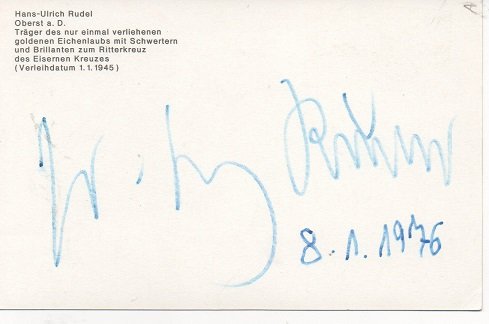 Hans-Ulrich Rudel
Oberst a. D.
Träger des nur einmal verliehenen
goldenen Eichenlaubs mit Schwertern
und Brillanten zum Ritterkreuz
des Eisernen Kreuzes
(Verleihdatum 1. 1. 1945)
8. 1. 1976